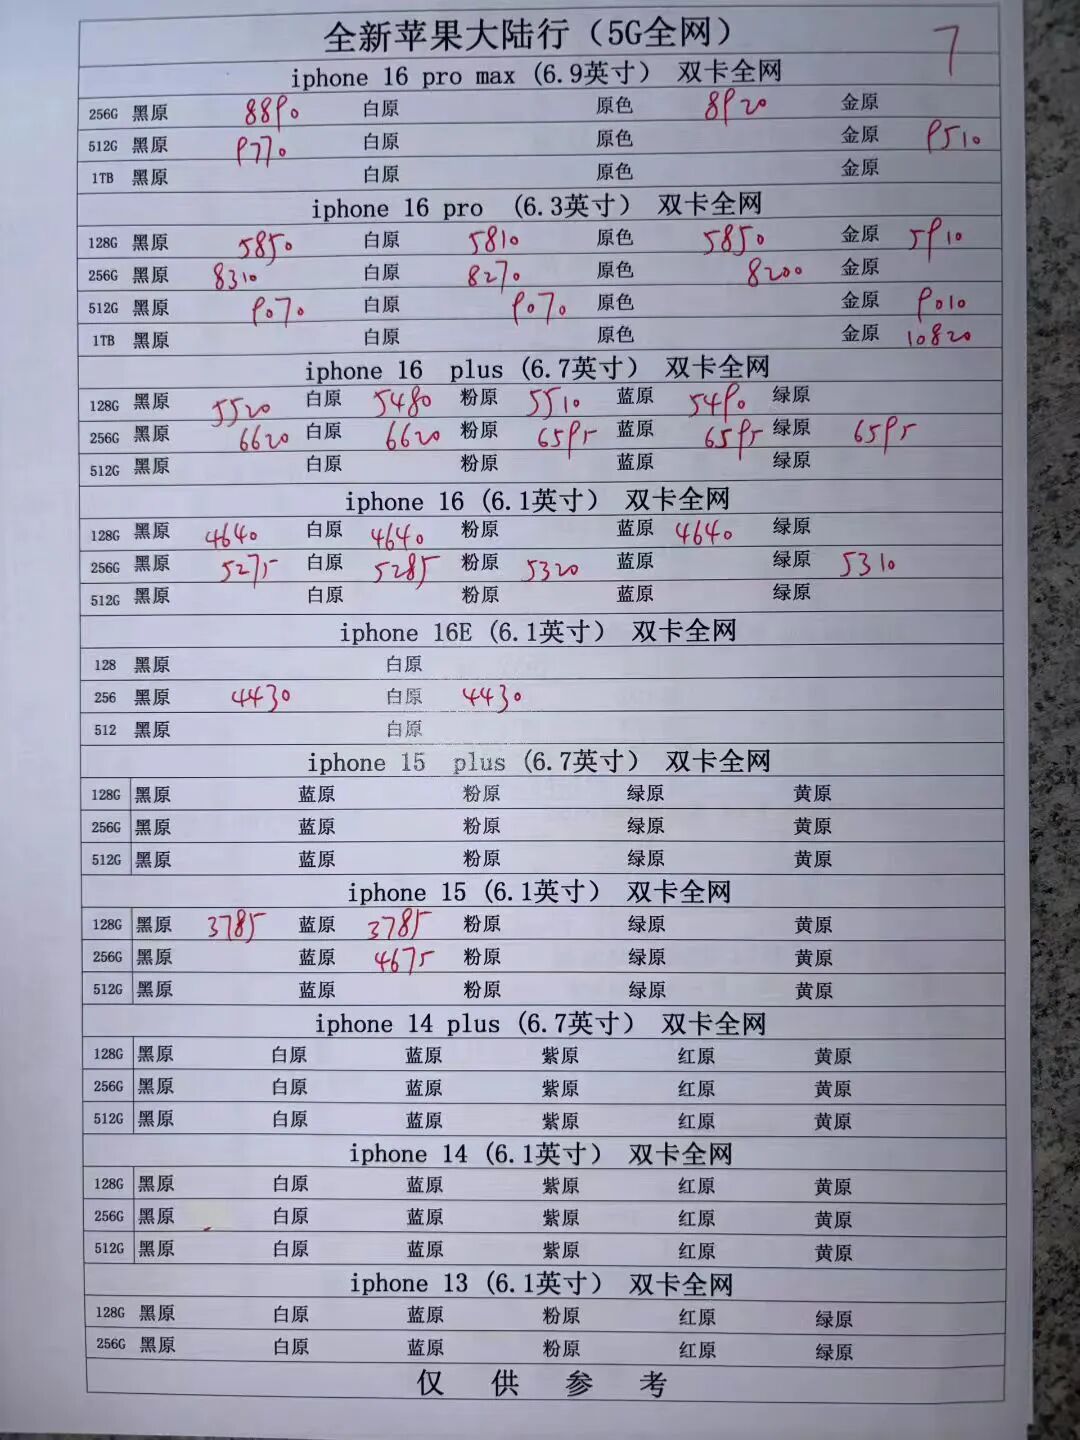 全新苹果大陆行（5G全网） 7
iphone 16 pro max (6.9英寸） 双卡全网
256G 黑原 8890 白原 原色 8920 金原
512G 黑原 9770 白原 原色 金原 9510
1TB 黑原 白原 原色 金原
iphone 16 pro (6.3英寸） 双卡全网
128G 黑原 5850 白原 5810 原色 5850 金原 5910
256G 黑原 8310 白原 8270 原色 8200 金原
512G 黑原 9070 白原 9070 原色 金原 9010
1TB 黑原 白原 原色 金原 10820
iphone 16 plus (6.7英寸） 双卡全网
128G 黑原 5520 白原 5480 粉原 5510 蓝原 5490 绿原
256G 黑原 6620 白原 6620 粉原 6595 蓝原 6595 绿原 6595
512G 黑原 白原 粉原 蓝原 绿原
iphone 16 (6.1英寸） 双卡全网
128G 黑原 4640 白原 4640 粉原 蓝原 4640 绿原
256G 黑原 5275 白原 5285 粉原 5320 蓝原 绿原 5310
512G 黑原 白原 粉原 蓝原 绿原
iphone 16E (6.1英寸） 双卡全网
128 黑原 白原
256 黑原 4430 白原 4430
512 黑原 白原
iphone 15 plus (6.7英寸） 双卡全网
128G 黑原 蓝原 粉原 绿原 黄原
256G 黑原 蓝原 粉原 绿原 黄原
512G 黑原 蓝原 粉原 绿原 黄原
iphone 15 (6.1英寸） 双卡全网
128G 黑原 3785 蓝原 3785 粉原 绿原 黄原
256G 黑原 蓝原 4675 粉原 绿原 黄原
512G 黑原 蓝原 粉原 绿原 黄原
iphone 14 plus (6.7英寸） 双卡全网
128G 黑原 白原 蓝原 紫原 红原 黄原
256G 黑原 白原 蓝原 紫原 红原 黄原
512G 黑原 白原 蓝原 紫原 红原 黄原
iphone 14 (6.1英寸） 双卡全网
128G 黑原 白原 蓝原 紫原 红原 黄原
256G 黑原 白原 蓝原 紫原 红原 黄原
512G 黑原 白原 蓝原 紫原 红原 黄原
iphone 13 (6.1英寸） 双卡全网
128G 黑原 白原 蓝原 粉原 红原 绿原
256G 黑原 白原 蓝原 粉原 红原 绿原
仅 供 参 考